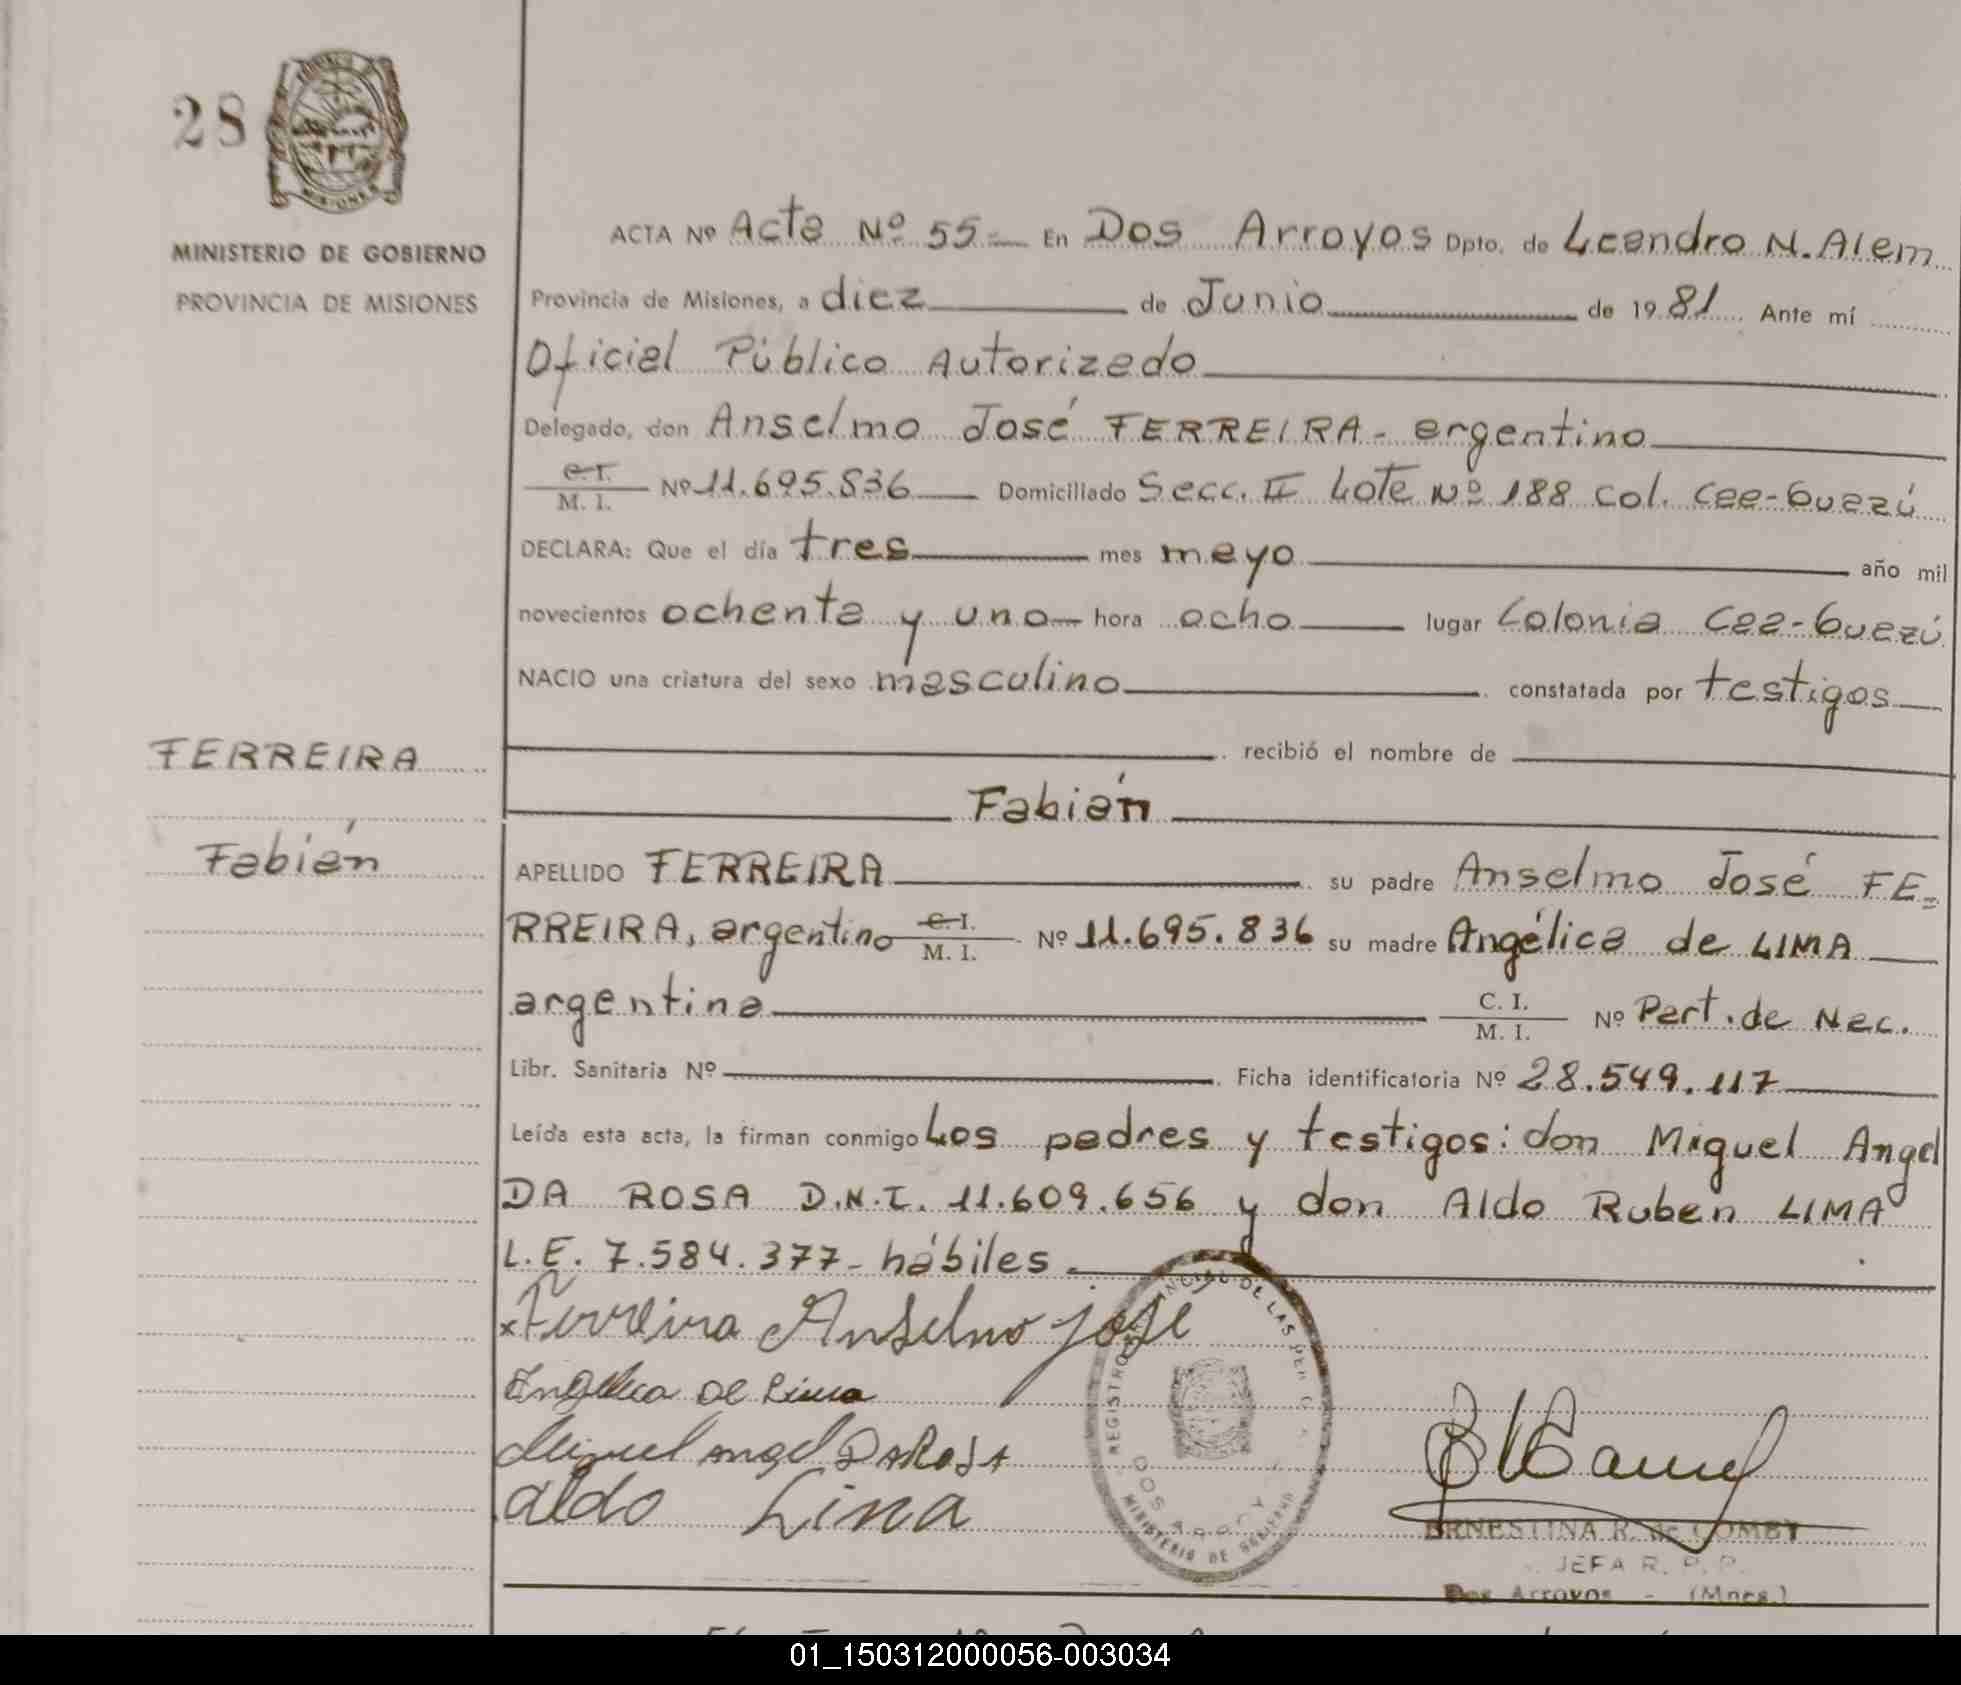 28
MINISTERIO DE GOBIERNO
PROVINCIA DE MISIONES
ACTA Nº Acta Nº 55- En Dos Arroyos Dpto. de Leandro N. Alem
Provincia de Misiones, a diez de Junio de 1981 Ante mí
Oficial Público Autorizado
Delegado, don Anselmo José FERREIRA - argentino
C.I. M. I. Nº 11.695.836 Domiciliado Secc. II Lote Nº 188 Col. Caa-Guazú
DECLARA: Que el día tres mes mayo año mil
novecientos ochenta y uno hora ocho lugar Colonia Caa-Guazú
NACIO una criatura del sexo masculino constatada por testigos
recibió el nombre de
Fabián
FERREIRA
Fabián
APELLIDO FERREIRA su padre Anselmo José FE=
RREIRA, argentino C.I. M. I. Nº 11.695.836 su madre Angélica de LIMA
argentina C. I. M. I. Nº Part. de Nac.
Libr. Sanitaria Nº Ficha identificatoria Nº 28.549.117
Leída esta acta, la firman conmigo Los padres y testigos: don Miguel Angel
DA ROSA D.N.I. 11.609.656 y don Aldo Ruben LIMA
L.E. 7.584.377- hábiles.
x Ferreira Anselmo jose
Angelica De Lima
Miguel angel DaRosa
aldo Lima
REGISTRO DE LAS PER
DOS ARROY
MINISTERIO DE GOBIERNO
ERNESTINA R. de COMBY
JEFA R. P. P.
Dos Arroyos - (Mnes.)
01_150312000056-003034